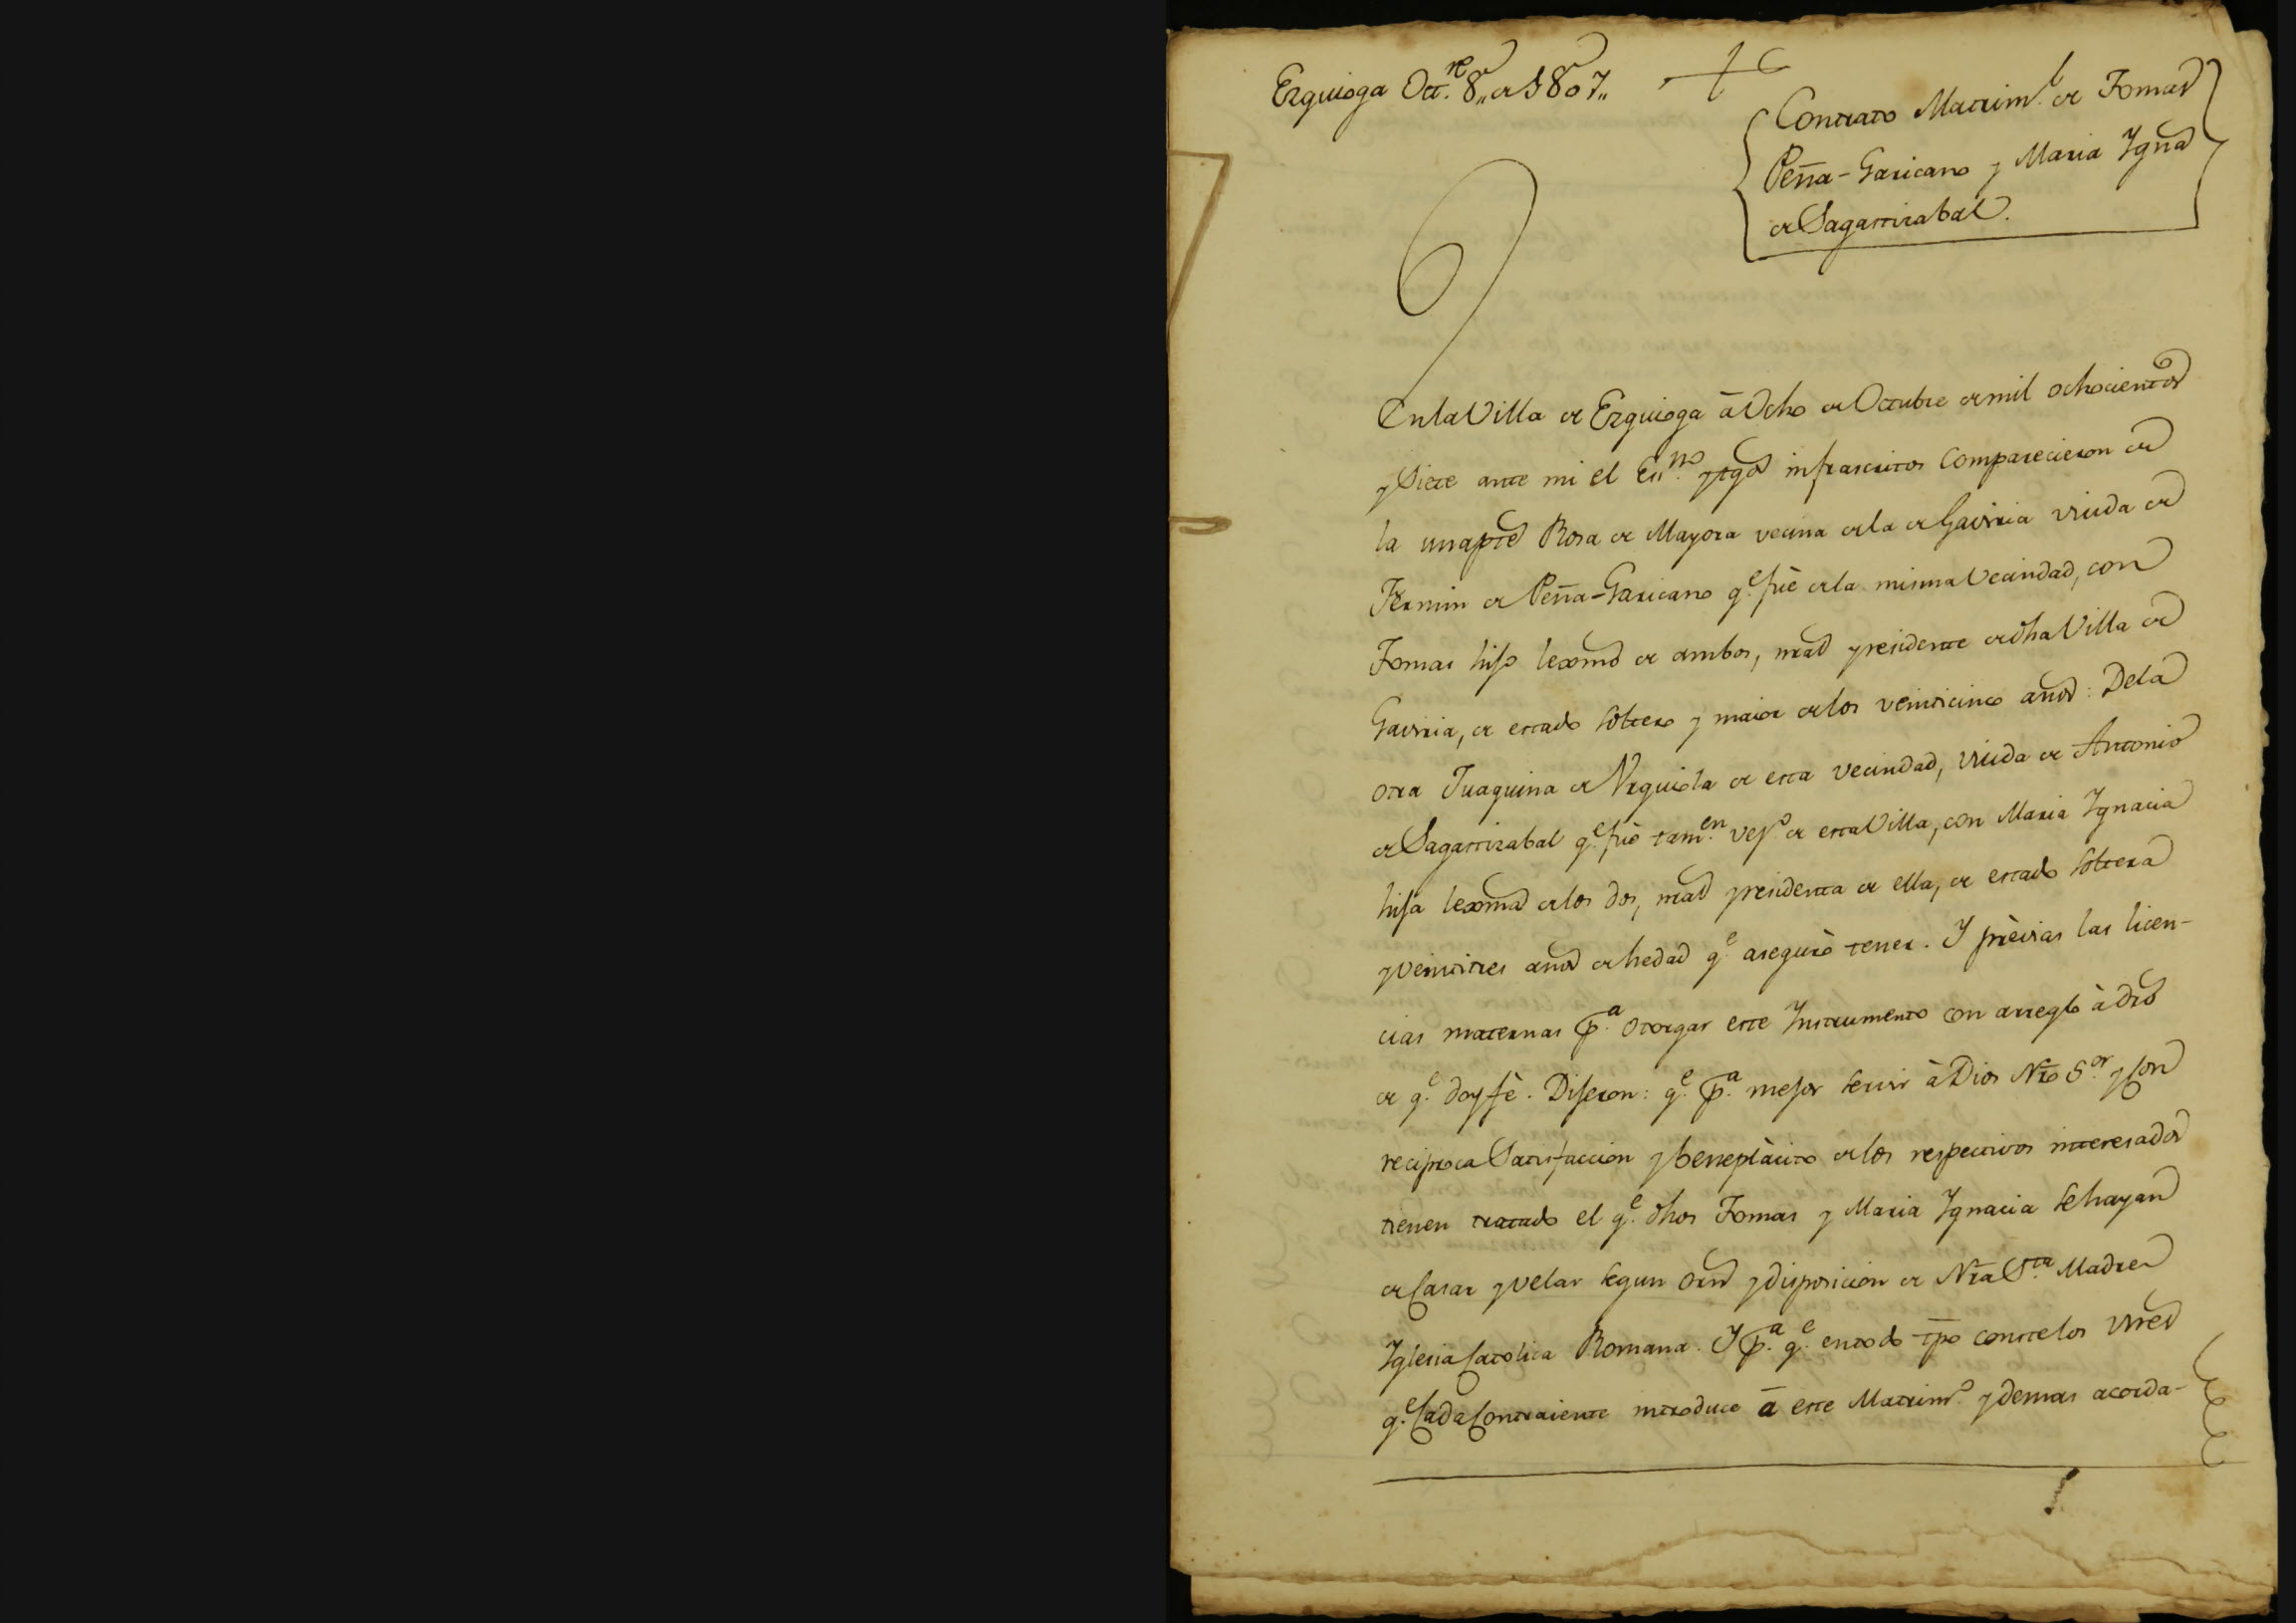 Ezquioga Oct.re 8,, de 1807,,
Contrato Matrim.l de Tomas
Peña-Garicano y Maria Ygna
de Sagastizabal.
En la Villa de Ezquioga â Ocho de Octubre de mil ochocientos
y Siete ante mi el Es.no y tgos infrascritos Comparecieron de
la una pte Rosa de Mayora vecina de la de Gaviria viuda de
Fermin de Peña-Garicano q.e fuè de la misma Vecindad, con
Tomas hijo lexmo de ambos, nral y residente de dha Villa de
Gaviria, de estado soltero y maior de los veinticinco años: De la
otra Juaquina de Urquiola de esta vecindad, viuda de Antonio
de Sagastizabal q.e fuè tam.en vez.o de esta Villa, con Maria Ygnacia
hija lexma de los dos, nral y residenta de ella, de estado soltera
y veintitres años de hedad q.e aseguró tener. Y prèvias las licen-
cias maternas p.a otorgar este Instrumento con arreglo à dro
de q.e doy fè. Dijeron: q.e p.a mejor servir à Dios Nro S.or y con
reciproca Satisfaccion y beneplàcito de los respectivos interesados
tienen tratado el q.e dhos Tomas y Maria Ygnacia se hayan
de Casar y velar segun orn y disposicion de Nra S.ta Madre
Yglesia Catolica Romana. Y p.a q.e en todo tpo conste los vines
q.e Cada Contraiente introduce â este Matrim.o y demas acorda-